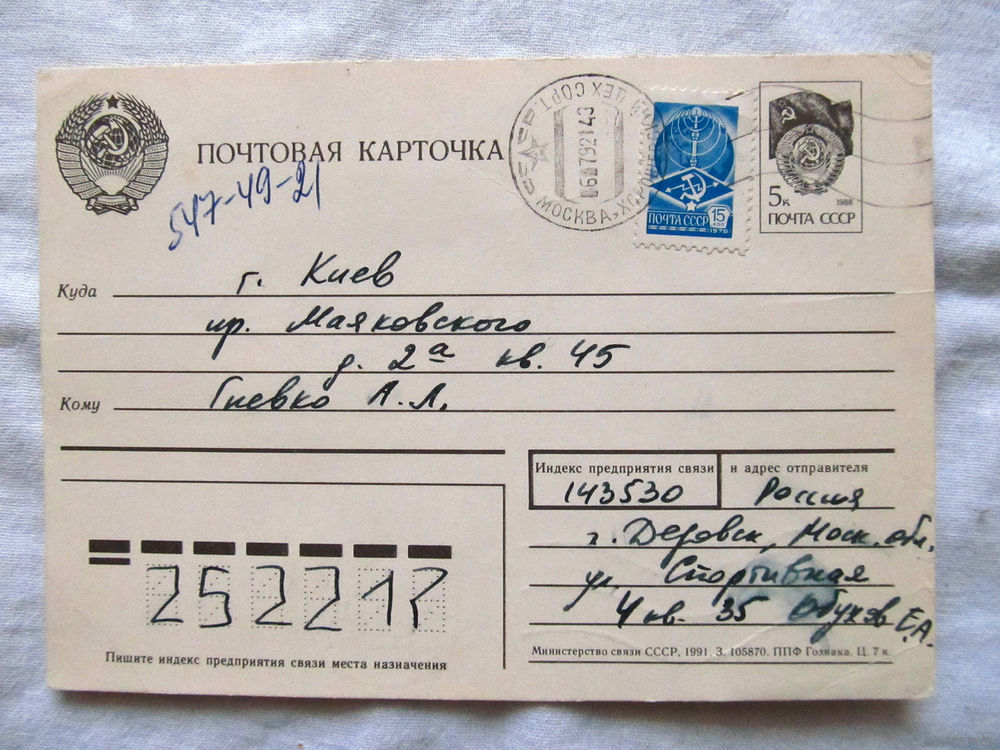 ПОЧТОВАЯ КАРТОЧКА
547-49-21
МОСКВА
ЦЕХ СОРТ.
ПОЧТА СССР 15 КОП
1978
5к 1988
ПОЧТА СССР
Куда г. Киев
пр. Маяковского
д. 2а кв. 45
Кому Гневко А.Л.
Индекс предприятия связи и адрес отправителя
143530 Россия
г. Дедовск, Моск. обл.
ул. Спортивная
4 кв. 35 Обухов Е.А.
252217
Пишите индекс предприятия связи места назначения
Министерство связи СССР, 1991. З. 105870. ППФ Гознака. Ц. 7 к.